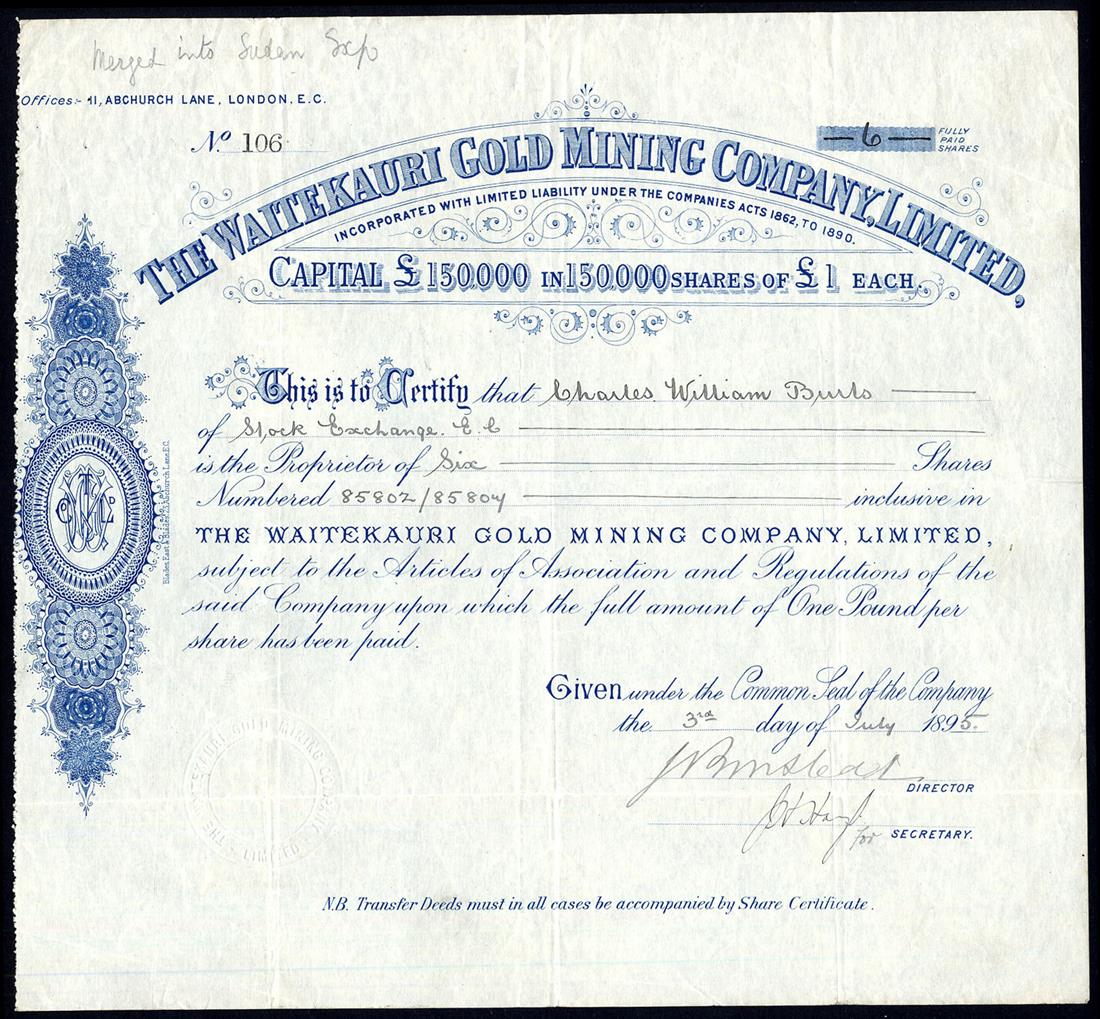 Merged into Sudan Exp
Offices:- 11, ABCHURCH LANE, LONDON, E.C.
No. 106
— 6 — FULLY PAID SHARES
THE WAITEKAURI GOLD MINING COMPANY, LIMITED,
INCORPORATED WITH LIMITED LIABILITY UNDER THE COMPANIES ACTS 1862, TO 1890.
CAPITAL £150,000 IN 150,000 SHARES OF £1 EACH.
This is to Certify that Charles William Burls
of Stock Exchange. E.C
is the Proprietor of Six Shares
Numbered 85802/85807 inclusive in
THE WAITEKAURI GOLD MINING COMPANY, LIMITED,
subject to the Articles of Association and Regulations of the
said Company upon which the full amount of One Pound per
share has been paid.
Given under the Common Seal of the Company
the 3rd day of July 1895.
DIRECTOR
for SECRETARY.
THE WAITEKAURI GOLD MINING COMPANY LIMITED
N.B. Transfer Deeds must in all cases be accompanied by Share Certificate.
Blades, East & Blades, Abchurch Lane, E.C.